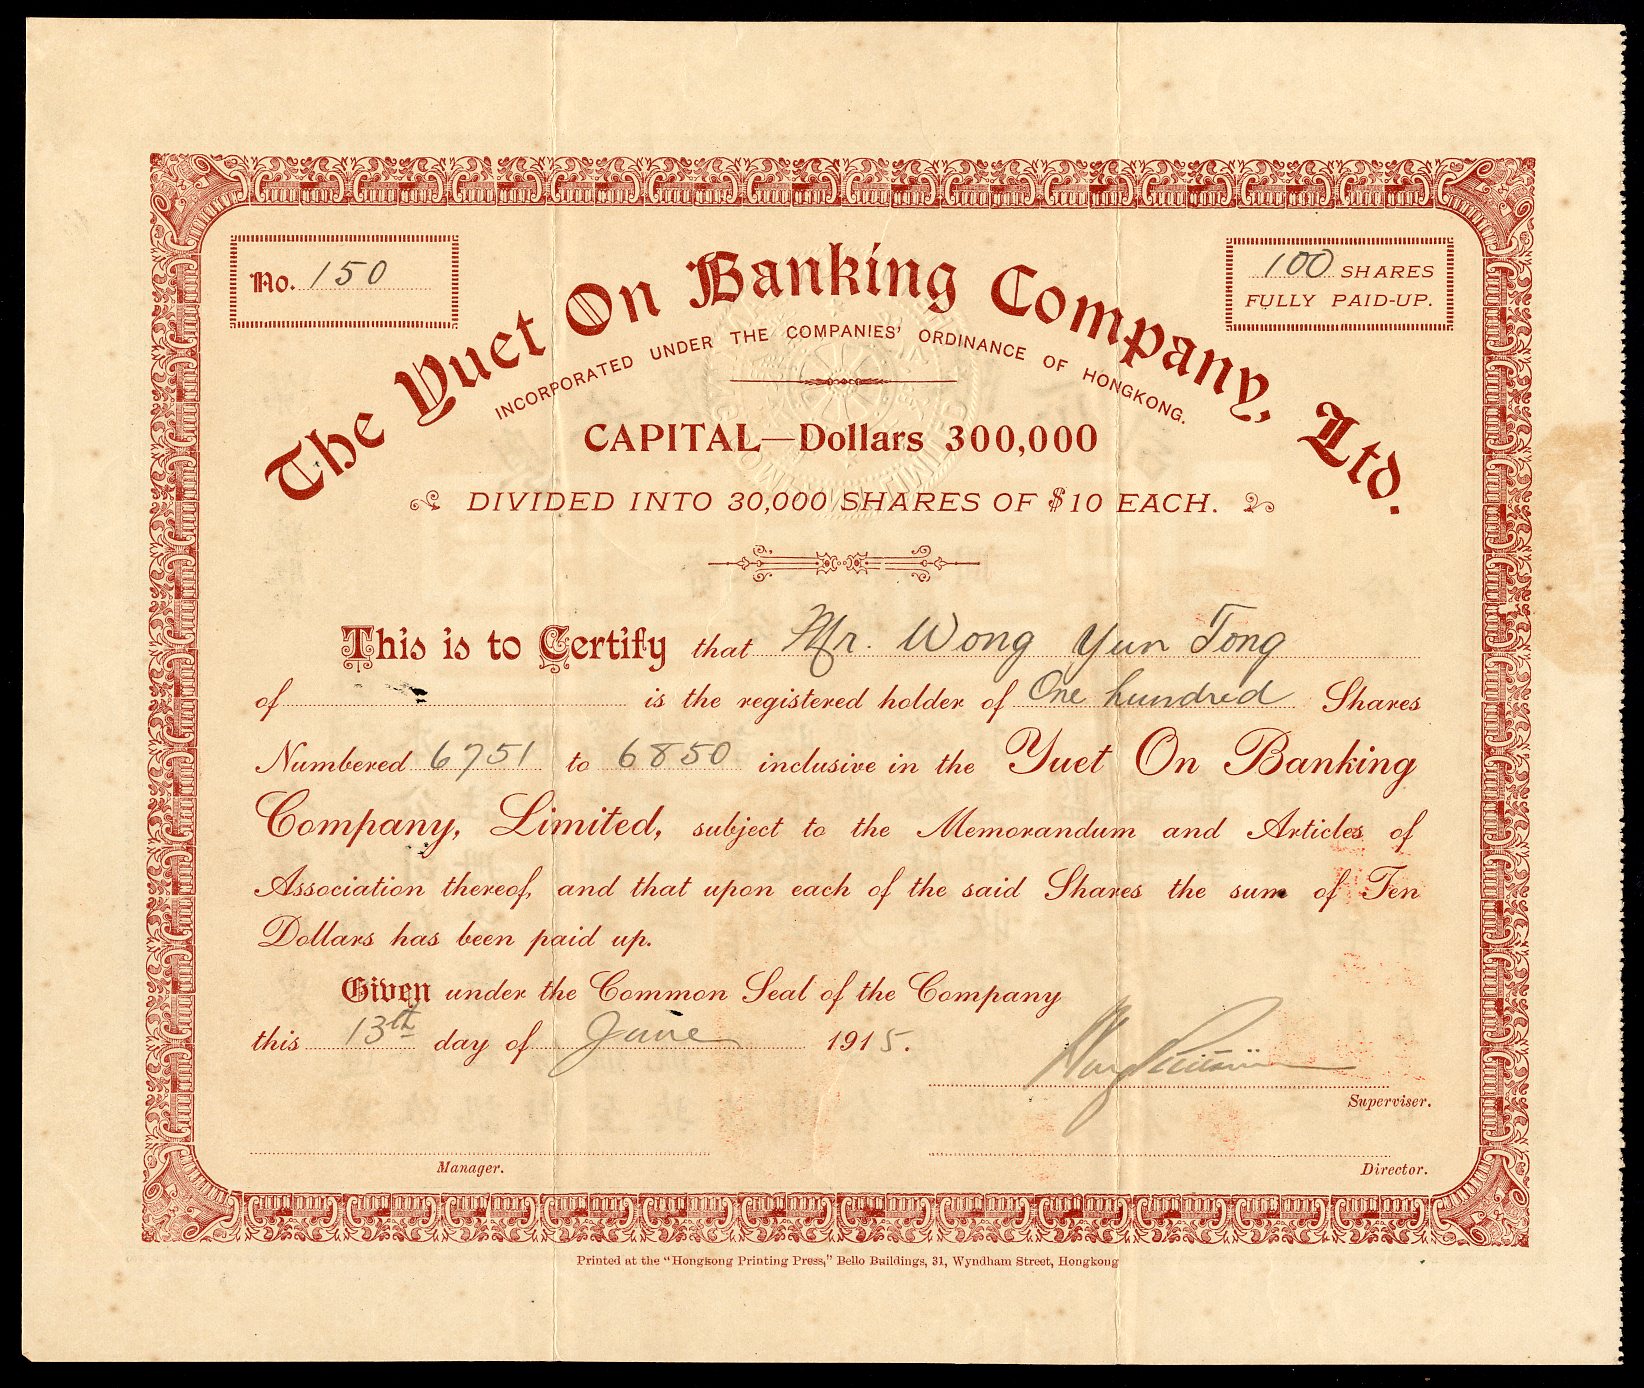 No. 150
100 SHARES
FULLY PAID-UP.
The Yuet On Banking Company, Ltd.
INCORPORATED UNDER THE COMPANIES' ORDINANCE OF HONGKONG.
CAPITAL—Dollars 300,000
DIVIDED INTO 30,000 SHARES OF $10 EACH.
This is to Certify that Mr. Wong Yun Tong
of is the registered holder of One hundred Shares
Numbered 6751 to 6850 inclusive in the Yuet On Banking
Company, Limited, subject to the Memorandum and Articles of
Association thereof, and that upon each of the said Shares the sum of Ten
Dollars has been paid up.
Given under the Common Seal of the Company
this 13th day of June 1915.
Superviser.
Manager.
Director.
Printed at the "Hongkong Printing Press," Bello Buildings, 31, Wyndham Street, Hongkong